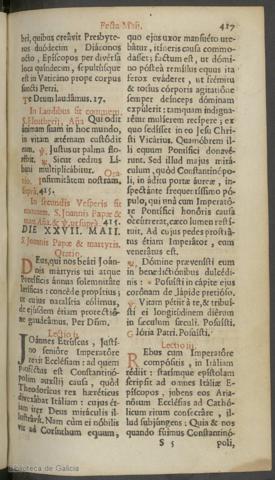 Festa Maii. 417
bri, quibus creavit Presbyte-
ros duodecim, Diáconos
octo, Episcopos per diversa
loca quindecim, sepultusque
est in Vaticáno prope corpus
sancti Petri.
Te Deum laudámus. 17.
In Laudibus fit commem.
S. Eleutherij, Aña Qui odit
ánimam suam in hoc mundo,
in vitam ætérnam custódit
Justus ut palma flo-
rébit. Sicut cedrus Lí-
bani multiplicábitur. Ora-
tio. Infirmitátem nostram,
suprà 415.
In secundis Vesperis fit
comem. S. Joannis Papæ &
mar. Aña & suprà 415.
DIE XXVII. MAII.
S. Joannis Papæ & martyris.
Oratio.
DEus, qui nos beáti Joán-
nis mártyris tui atque
Pontíficis ánnua solemnitáte
lætíficas: concéde propítius;
ut cujus natalítia cólimus,
de ejúsdem étiam protectió-
ne gaudeámus. Per Dñm.
Lectio ij.
JOánnes Etrúscus, Justí-
no senióre Imperatóre
rexit Ecclésiam: ad quem
proféctus est Constantinó-
polim auxílij causa, quòd
Theodóricus rex hæréticus
divexábat Itáliam: cujus &
iter Deus miráculis il-
lustrávit. Nam cùm ei nóbilis
vir ad Corínthum equum,
quo ejus uxor mansuéto ute-
bátur, itíneris causa commo-
dásset; factum est, ut dómi-
no pósteà remíssus equus ita
ferox eváderet, ut frémitu
& totíus córporis agitatióne
semper deínceps dóminam
expúlerit: tamquam indigná-
retur mulíerem recípere; ex
quo sedísset in eo Jesu Chri-
sti Vicárius. Quamóbrem il-
li equum Pontífici donavé-
runt. Sed illud majus mirá-
culum, quòd Constantinópo-
li, in áditu portæ áureæ, in-
spectánte frequentíssimo pó-
pulo, qui unà cum Imperató-
re Pontífici honóris causâ
occúrrerat, cæco lumen resti-
tuit. Ad cujus pedes prostrá-
tus étiam Imperátor, eum
venerátus est.
Dómine prævenísti eum
in benedictiónibus dulcédi-
nis: * Posuísti in cápite ejus
corónam de lápide pretióso.
Vitam pétiit à te, & tribuí-
sti ei longitúdinem diérum
in sæculum sæculi. Posuísti.
Glória Patri. Posuísti.
Lectio iij.
REbus cum Imperatóre
compósitis, in Itáliam
rédiit: statimque epístolam
scripsit ad omnes Itáliæ E-
píscopos, jubens eos Aria-
nórum Ecclésias ad Cathó-
licum ritum consecráre, il-
lud subjúngens: Quia & nos
quando fúimus Constantinó-
S 5 poli,
Biblioteca de Galicia